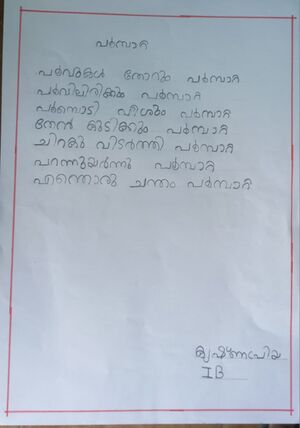 പൂമ്പാറ്റ
പൂവുകൾ തോറും പൂമ്പാറ്റ
പൂവിലിരിക്കും പൂമ്പാറ്റ
പൂമ്പൊടി വീശും പൂമ്പാറ്റ
തേൻ കുടിക്കും പൂമ്പാറ്റ
ചിറകു വിടർത്തി പൂമ്പാറ്റ
പറന്നുയർന്നു പൂമ്പാറ്റ
എന്തൊരു ചന്തം പൂമ്പാറ്റ
കൃഷ്ണപ്രിയ
I B